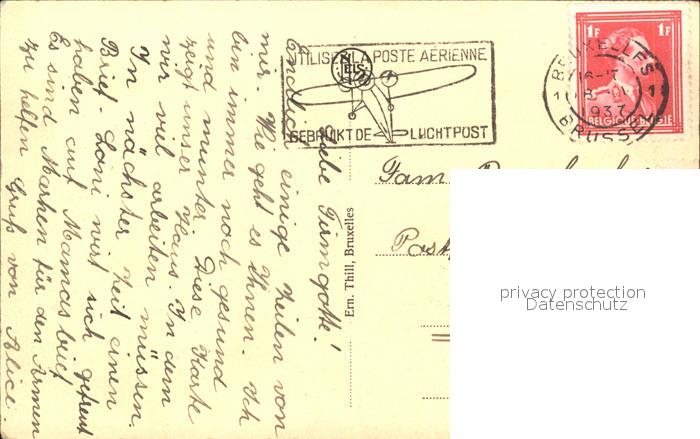 Liebe Firmgotte!
Endlich einige Zeilen von
mir. Wie geht es Ihnen. Ich
bin immer noch gesund
und munter. Diese Karte
zeigt unser Haus. In dem
wir viel arbeiten müssen.
In nächster Zeit einen
Brief. Loni wird sich gefreut
haben auf Mamas brief
Es sind Marken für den Armen
zu helfen Gruß von Alice.
Ern. Thill, Bruxelles
UTILISEZ LA POSTE AÉRIENNE
NELS
GEBRUIKT DE LUCHTPOST
BRUXELLES
1937
BRUSSEL
1F 1F
BELGIQUE-BELGIË
Fam
Post
privacy protection
Datenschutz